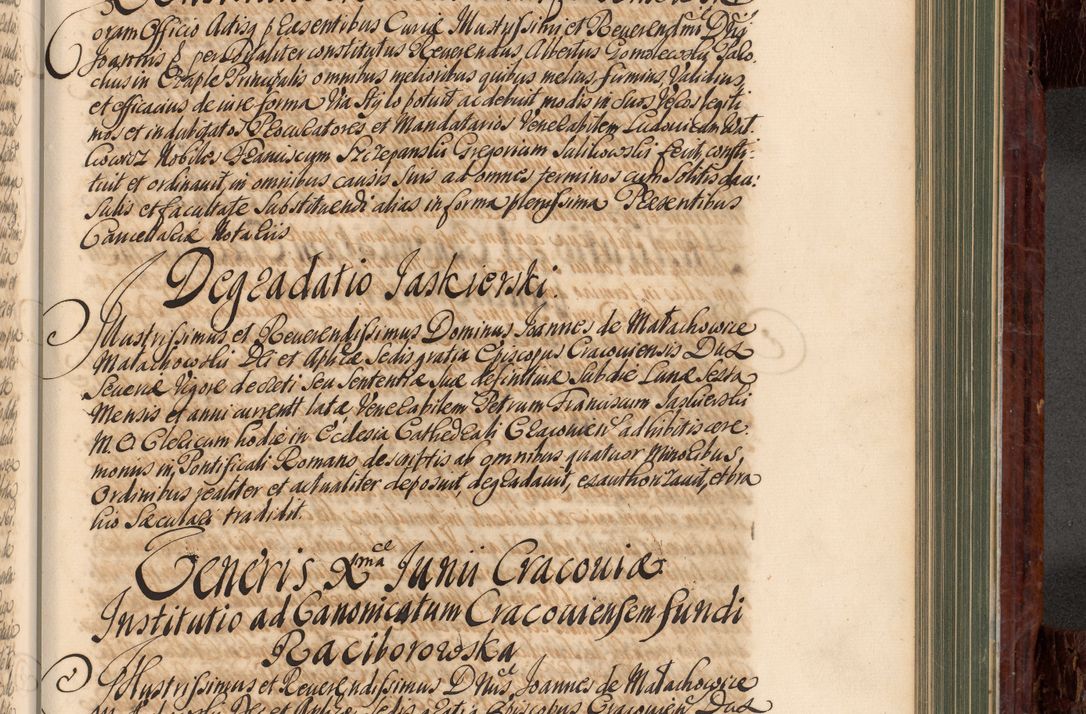 oram Officio Actisq praesentibus Curiae Illustrissimi et Reverendissimi Dni
Joannis personaliter constitutus Reverendus Albertus Gomolewski Paro
chus in omnibus melioribus quibus melius firmius validius
et efficacius de iure forma via stylo potuit ac debuit modis in suos veros legiti
mos et indubitatos Procuratores et Mandatarios Venerabilem Ludovicum Wat
Nobiles Franciscum Szczepanski Gregorium Sulikowski fecit, consti:
tuit et ordinavit, in omnibus causis suis ad omnes terminos cum solitis clau:
sulis et facultate substituendi alias in forma plenissima Praesentibus
Cancellariae Notariis
Degradatio Jaskierski.
Illustrissimus et Reverendissimus Dominus Joannes de Małachowice
Małachowski Dei et Aplicae Sedis gratia Episcopus Cracoviensis Dux
Severiae vigore decreti seu sententiae suae definitivae sub die Lunae sexta
Mensis et anni currentt latae Venerabilem Petrum Franciscum Jaskierski
M. C. Clericum hodie in Ecclesia Cathedrali Cracovien adhibitis cere
moniis in Pontificali Romano descriptis ab omnibus quatuor Minoribus,
Ordinibus realiter et actualiter deposuit, degradavit, exauthorizavit, et bra
hio saeculari tradidit.
Veneris Xma Junii Cracoviae
Institutio ad Canonicatum Cracoviensem fundi
Raciborowska
Illustrissimus et Reverendissimus Dnus Joannes de Małachowice
Dei et Aplicae Sedis gratia Episcopus Cracovien Dux